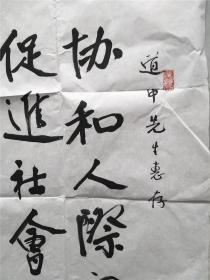 道中先生惠存
协和人際
促進社會